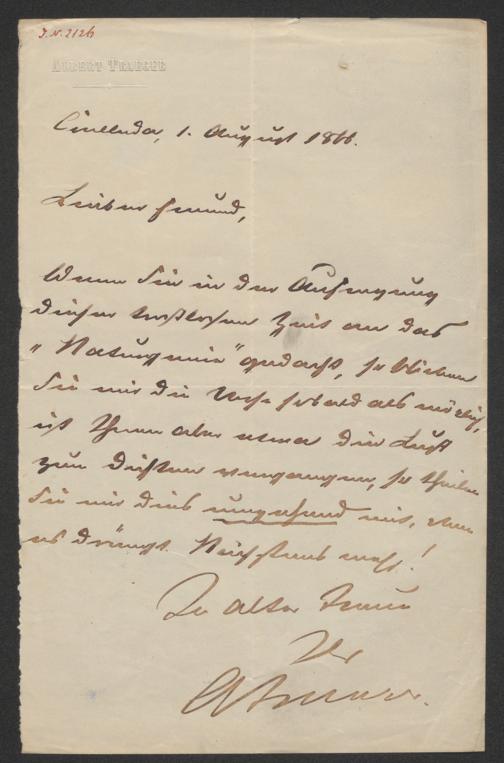 J.N. 2126
ALBERT TRAEGER
Coelleda, 1. August 1866.
Lieber Freund,
Wenn Sie in der Aufregung
dieser trostlosen Zeit an das
"Naturgenie" gedacht, so schicken
Sie mir die Verse sobald als möglich,
ist Ihnen aber etwa die Lust
zum Dichten vergangen, so theilen
Sie mir dies umgehend mit, denn
es drängt. Nächstens mehr!
In alter Treue
Ihr
ATraeger.